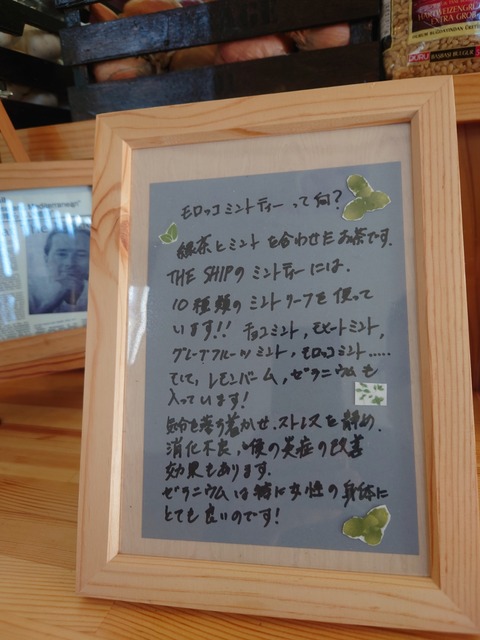 HARTWEIZENGRÜ
EXTRA GRO
DURU
BAŞBAŞI BULGUR
モロッコミントティー って何?
緑茶とミント を合わせた お茶です。
THE SHIPの ミントティーには、
10種類の ミントリーフを 使って
います!! チョコミント, モヒートミント,
グレープフルーツミント, モロッコミント.....
そして, レモンバーム, ゼラニウムも
入っています!
気分を落ち着かせ、ストレスを静め、
消化不良, 喉の炎症の改善
効果もあります。
ゼラニウムは特に女性の身体に
とても良いのです!